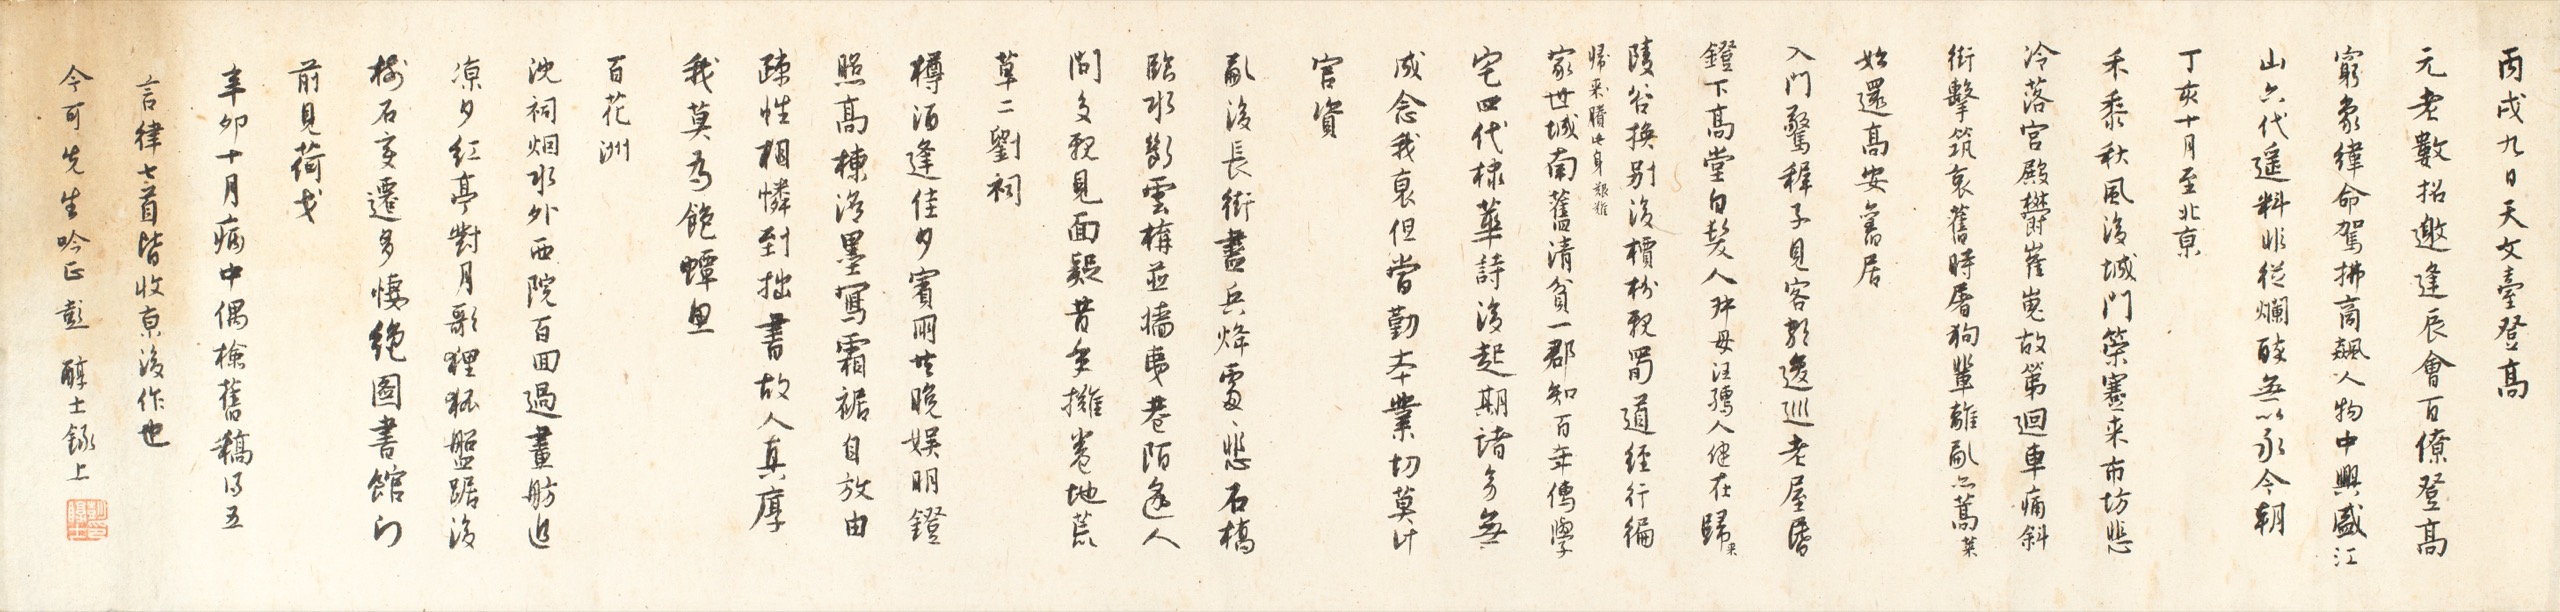 丙戌九日天文臺登高
元老數招邀逢辰會百僚登高
窮象緯命駕拂商飆人物中興盛江
山六代遥料非從爛醉無以永今朝
丁亥十月至北京
禾黍秋風後城門築塞来市坊悲
冷落宫殿鬱崔嵬故第迴車痛斜
街擊筑哀舊時屠狗輩離亂亡蒿萊
始還高安舊居
入門驚稺子見客影逡巡老屋昏
鐙下高堂白髮人
陵谷換别後檟枌
歸來賸此身艱難
家世城南舊清貧一郡知百年傳學
宅四代棣華詩後起期諸
咸念我衰但當勤本業切莫計
官資
亂後長街盡兵烽
臨水斷雲構並墻夷巷陌逢人
問多親見面疑昔年擁卷地荒
草二劉祠
樽酒逢佳夕賓朋共晚娱明鐙
照高棟潑墨寫霜裾自放由
疎性相憐到拙書故人真厚
我莫為飽蟫魚
百花洲
沈祠烟水外西院百回過畫舫追
凉夕紅亭對月歌狸狌盤踞後
樹石變遷多悽絶圖書館門
前見荷戈
辛卯十月病中偶檢舊稿得五
言律七首皆收京後作也
今可先生吟正彭醇士録上